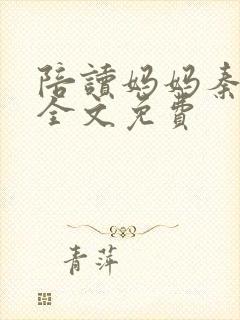 陪讀妈妈秦
全文免費
青萍